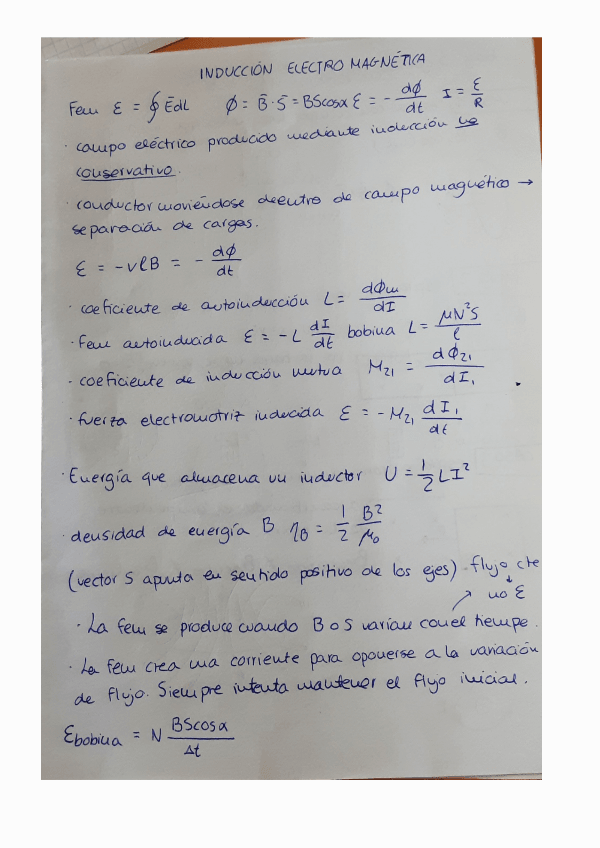 INDUCCIÓN ELECTROMAGNÉTICA
Fem ε = ∮ Ē dL   φ = B̄ · S̄ = BScosα   ε = - dφ/dt   I = ε/R
· campo eléctrico producido mediante inducción no
conservativo.
· conductor moviéndose deentro de campo magnético →
separación de cargas.
ε = -vlB = - dφ/dt
· coeficiente de autoinducción L = dφm/dI
· Fem autoinducida ε = -L dI/dt   bobina L = μN²S/l
· coeficiente de inducción mutua M₂₁ = dφ₂₁/dI₁
· fuerza electromotriz inducida ε = -M₂₁ dI₁/dt
· Energía que almacena un inductor U = 1/2 LI²
· densidad de energía B η_B = 1/2 B²/μ₀
(vector S apunta en sentido positivo de los ejes) · flujo cte
↓
↗ no ε
· La fem se produce cuando B o S varían con el tiempo.
· La fem crea una corriente para oponerse a la variación
de flujo. Siempre intenta mantener el flujo inicial.
ε bobina = N BScosα/Δt